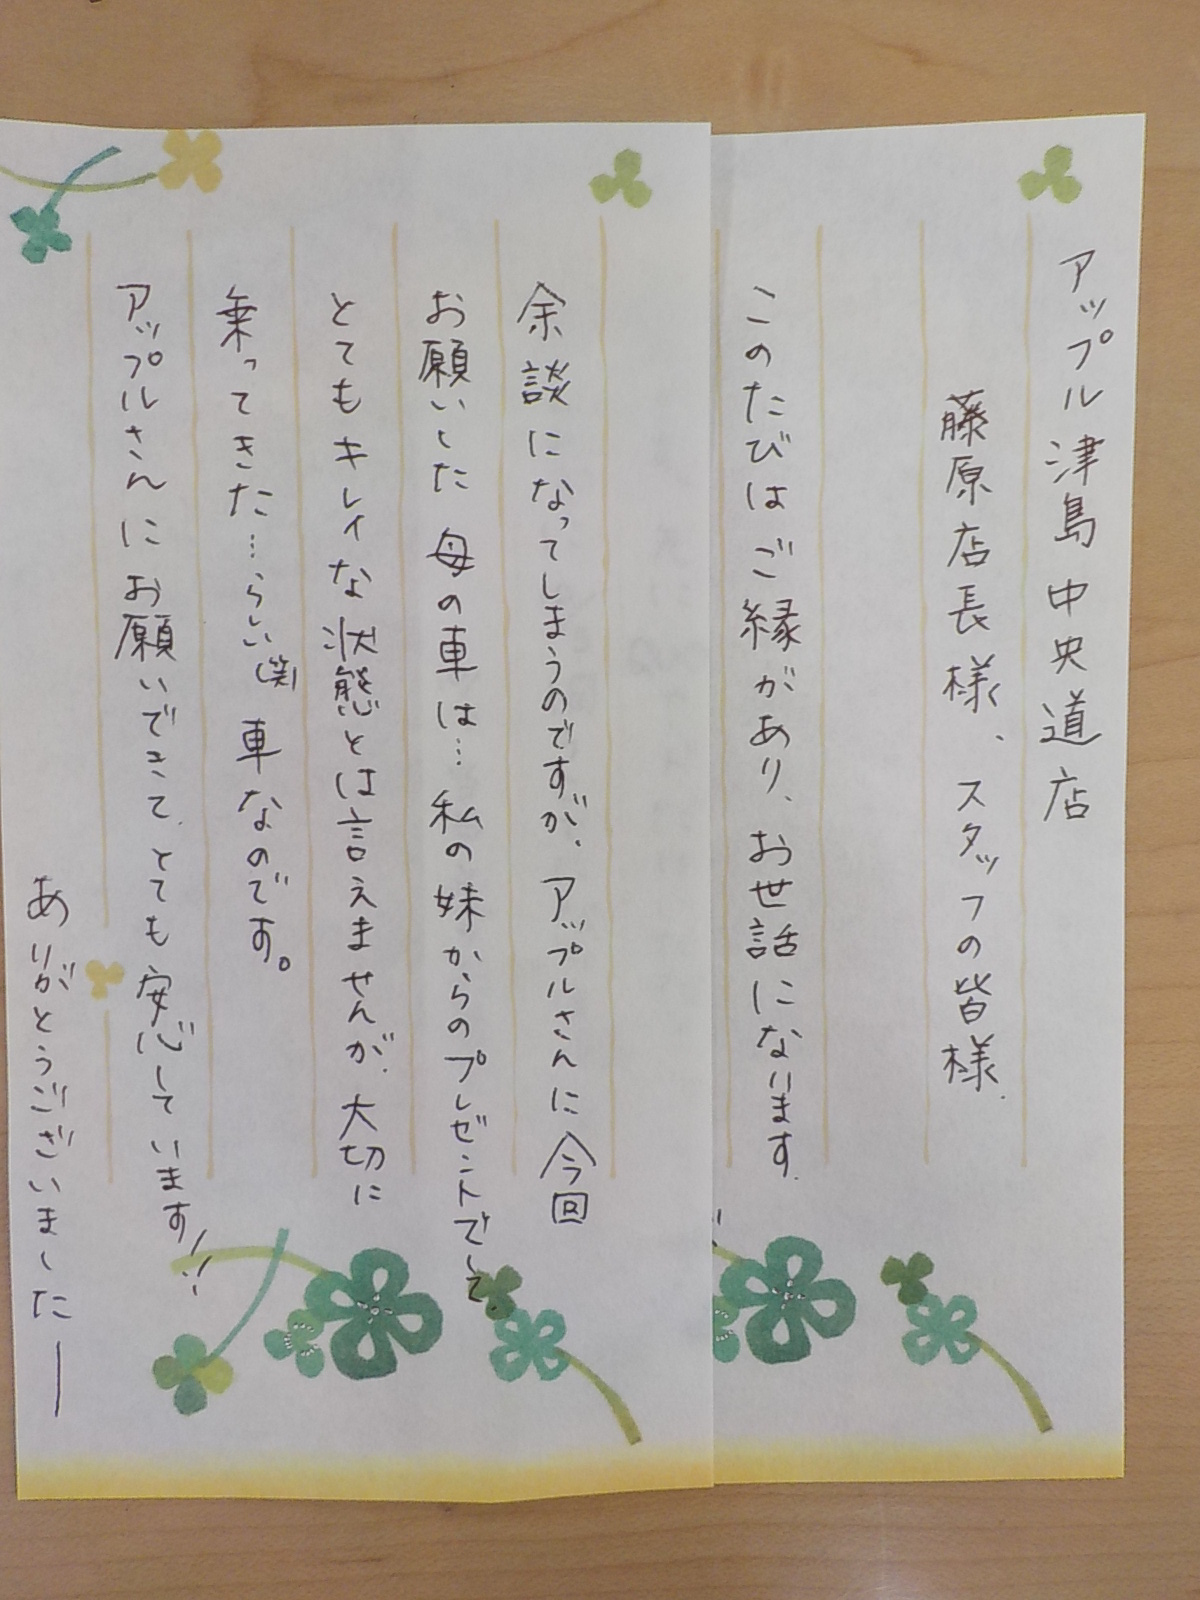 アップル津島中央道店
藤原店長様、スタッフの皆様
このたびはご縁があり、お世話になります。
余談になってしまうのですが、アップルさんに今回
お願いした母の車は…私の妹からのプレゼントでして、
とてもキレイな状態とは言えませんが、大切に
乗ってきた…らしい(笑)車なのです。
アップルさんにお願いできて、とても安心しています!!
ありがとうございました――